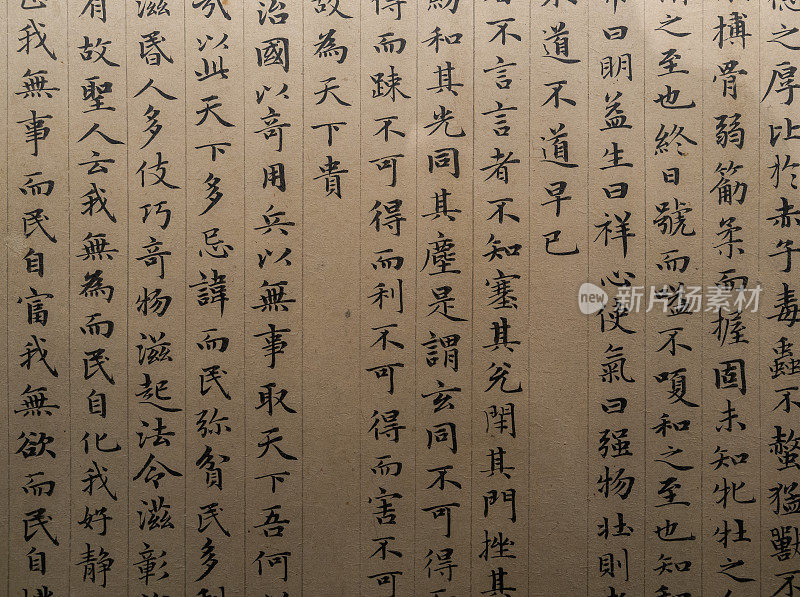 之厚比於赤子毒蟲不螫猛獸不
搏骨弱筋柔而握固未知牝牡之
之至也終日號而嗌不嗄和之至也知和
曰明益生曰祥心使氣曰强物壯則
道不道早已
者不言言者不知塞其兊閇其門挫其
紛和其光同其塵是謂玄同不可得
得而踈不可得而利不可得而害不可
故為天下貴
治國以竒用兵以無事取天下吾何
以此天下多忌諱而民弥貧民多
滋昬人多伎巧竒物滋起法令滋彰
有故聖人云我無為而民自化我好静
我無事而民自富我無欲而民自
new 新片场素材